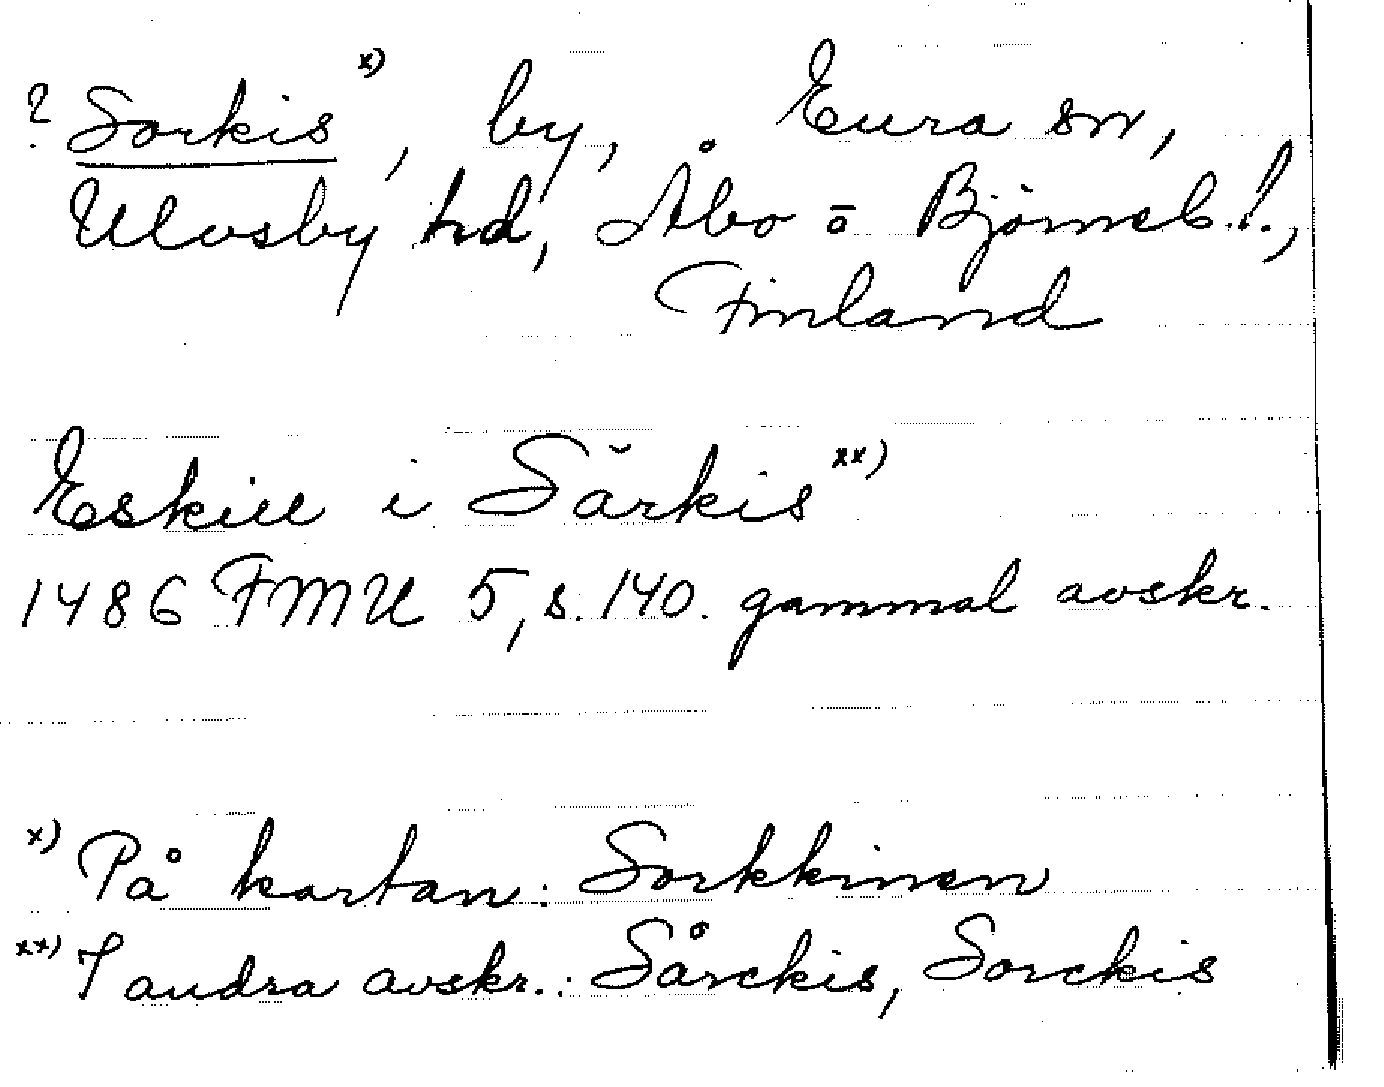 ? Sorkis x), by, Eura sn,
Ulvsby hd, Åbo o Björneb. l.,
Finland
Eskill i Särkis xx)
1486 FMU 5, s. 140. gammal avskr.
x) På kartan: Sorkkinen
xx) I andra avskr.: Sårckis, Sorckis